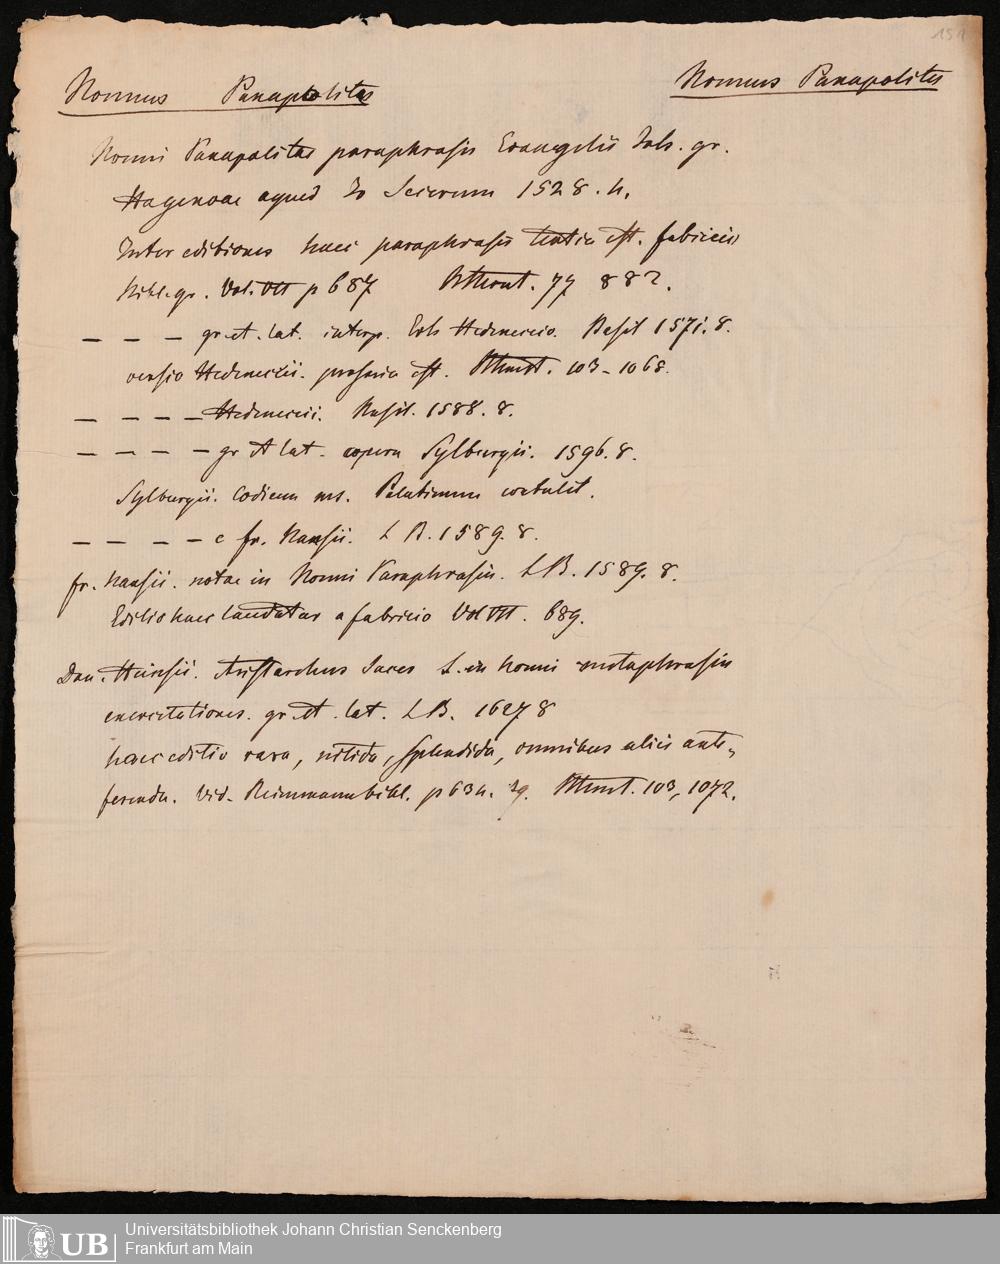 151
Nonnus Panapolites
Nonnus Panapolites
Nonni Panapolitae paraphrasis Evangelii Joh. gr.
Hagenoae apud Jo Secerum 1528. 4.
Inter editiones haec paraphrasis tertia est. fabricii
Bibl. gr. Vol. VII p 687 77 882.
— — — gr. et. lat. interp. Hedeneccio. Basil 1571. 8.
versio Hedeneccii. prosaria est. 103-1068.
— — — — Hedeneccii. Basil. 1588. 8.
— — — — gr et lat. opera Sylburgii. 1596. 8.
Sylburgii. codicem ms. Palatinum contulit.
— — — — c fr. Nansii. L B. 1589. 8.
fr. Nansii. notae in Nonni Paraphrasin. L B. 1589. 8.
Editio haec laudatur a fabricio Vol VII. 689.
Dan. Heinsii. Aristarchus Sacer S. in Nonni metaphrasin
exercitationes. gr. et. lat. L B. 1627 8
haec editio rara, nitida, splendida, omnibus aliis ante-
ferenda. Vid. Reimmann bibl. p 634. sq. 103, 1072.
UB Universitätsbibliothek Johann Christian Senckenberg
Frankfurt am Main